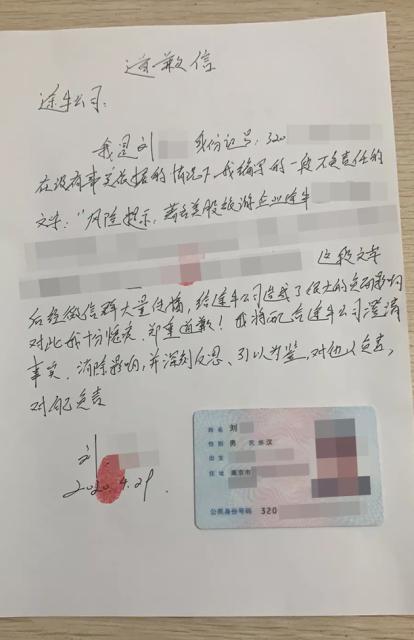 道歉信
途牛公司:
我是刘 身份证号:320
在没有事实依据的情况下,我编写的一段不负责任的
文字:"风险提示,某美股旅游企业途牛
这段文字
后经微信群大量传播,给途牛公司造成了很大的负面影响
对此我十分愧疚,郑重道歉!我将配合途牛公司澄清
事实、消除影响,并深刻反思、引以为鉴,对他人负责,
对自己负责
刘
2020.4.29.
姓名 刘
性别 男 民族 汉
出生
住址 南京市
公民身份号码 320